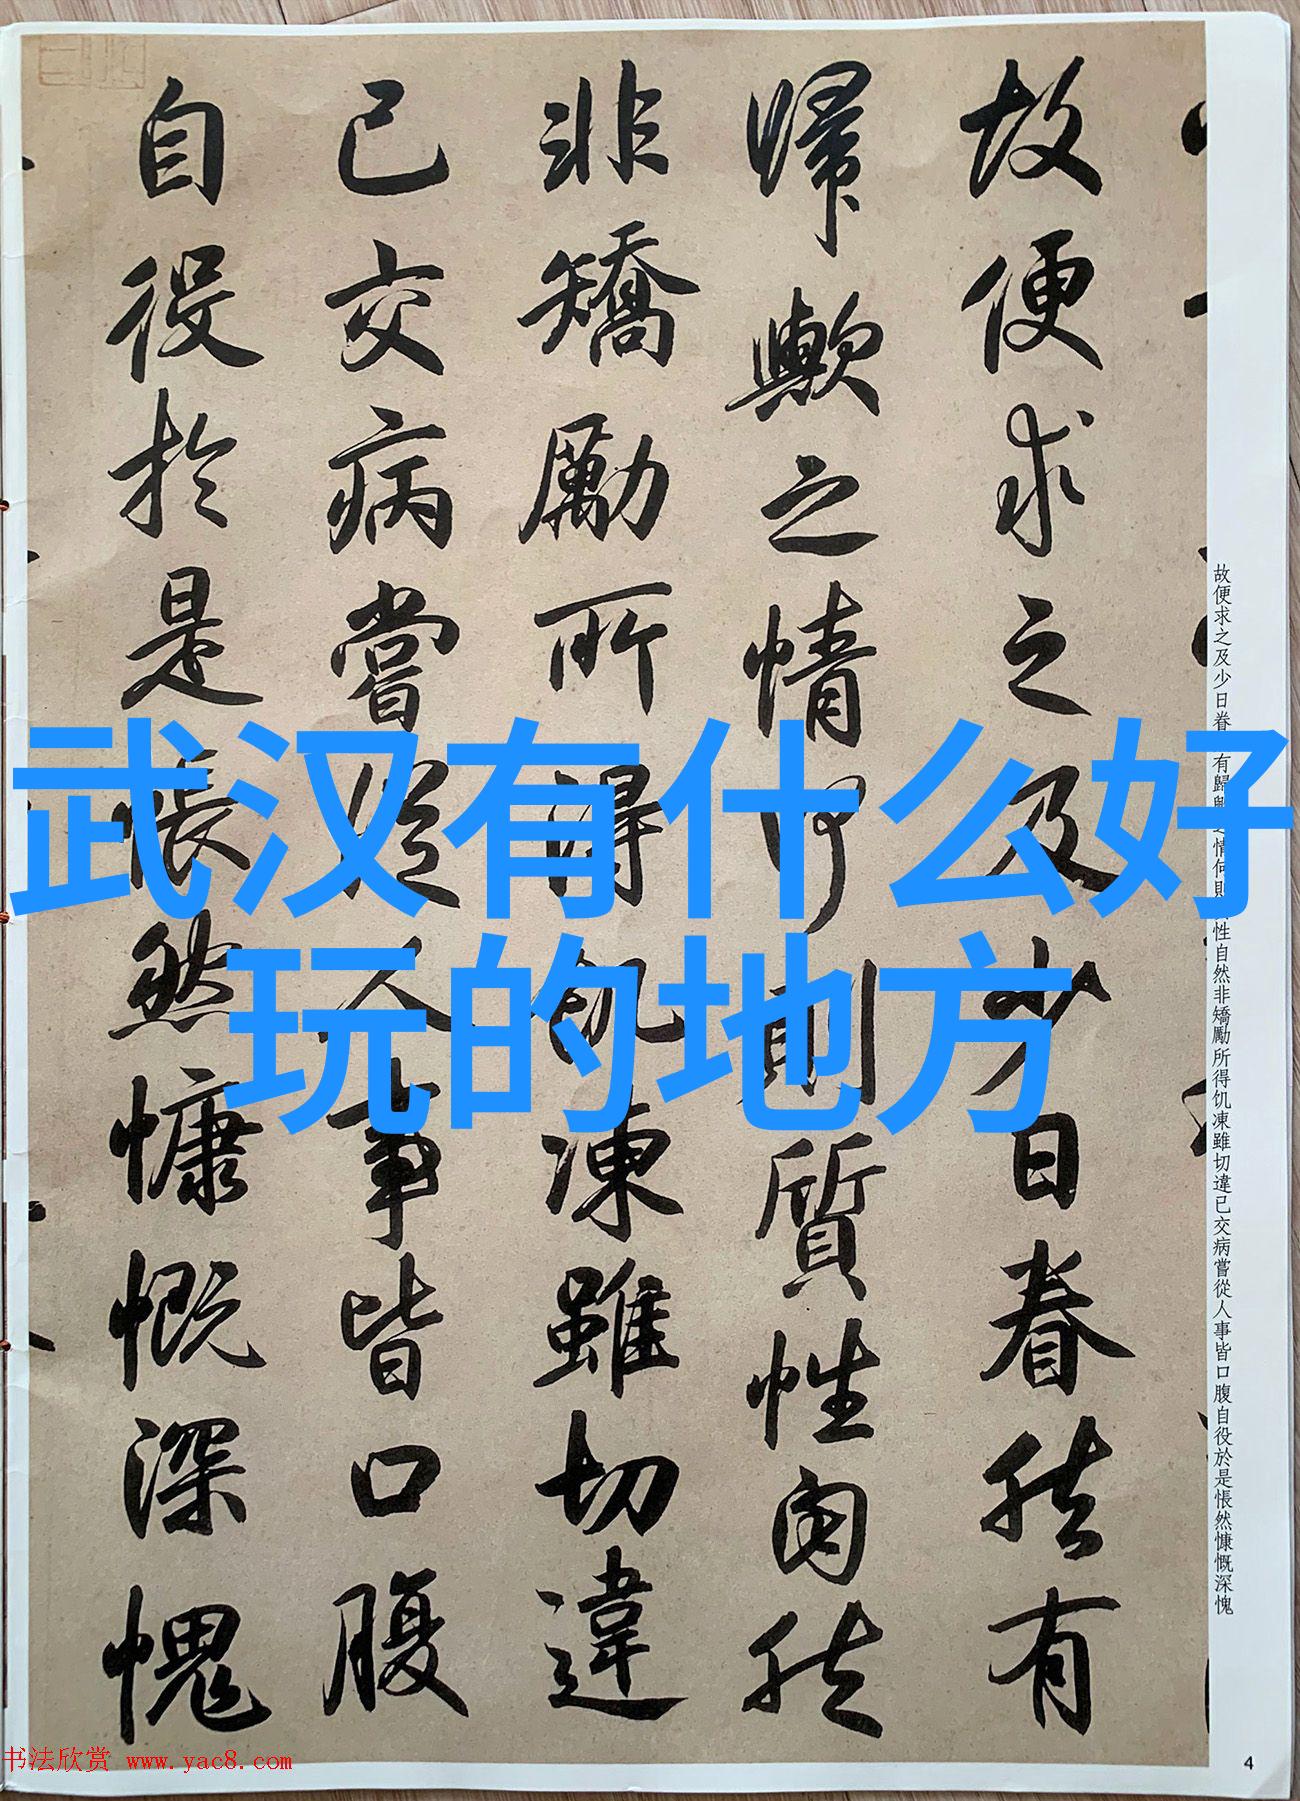 武汉有什么好
玩的地方
故便求之及少日眷然有
歸歟之情何則質性自然
非矯勵所得飢凍雖切違
已交病嘗從人事皆口腹
自役於是悵然慷慨深愧
故便求之及少日眷有歸情何則性自然非矯勵所得饥凍雖切違已交病嘗從人事皆口腹自役於是悵然慷慨深愧
4
书法欣赏 www.yac8.com